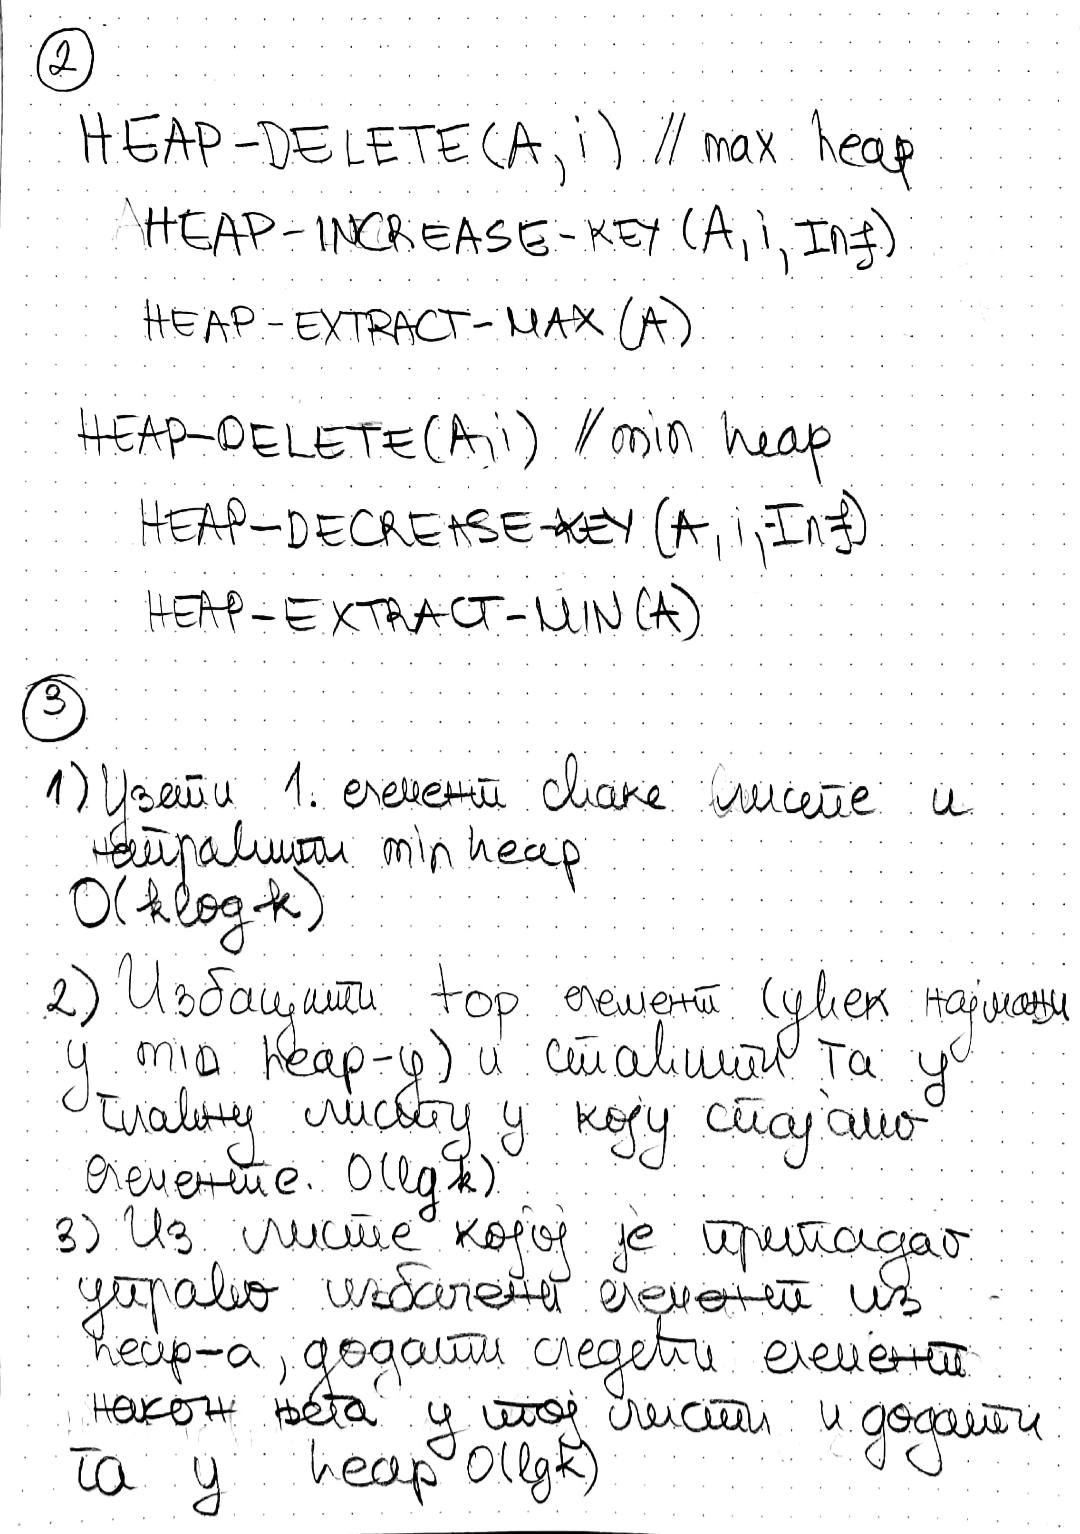 2
HEAP-DELETE(A, i) // max heap
HEAP-INCREASE-KEY (A, i, Inf)
HEAP-EXTRACT-MAX (A)
HEAP-DELETE(A, i) // min heap
HEAP-DECREASE-KEY (A, i, -Inf)
HEAP-EXTRACT-MIN (A)
3
1) Узети 1. елемент сваке листе и
направити min heap
O(k log k)
2) Избацити top елемент (увек најмањи
у min heap-у) и ставити га у
главну листу у коју спајамо
елементе. O(lg k)
3) Из листе којој је припадао
управо избачени елемент из
heap-a, додати следећи елемент
након њега у тој листи и додати
га у heap O(lg k)